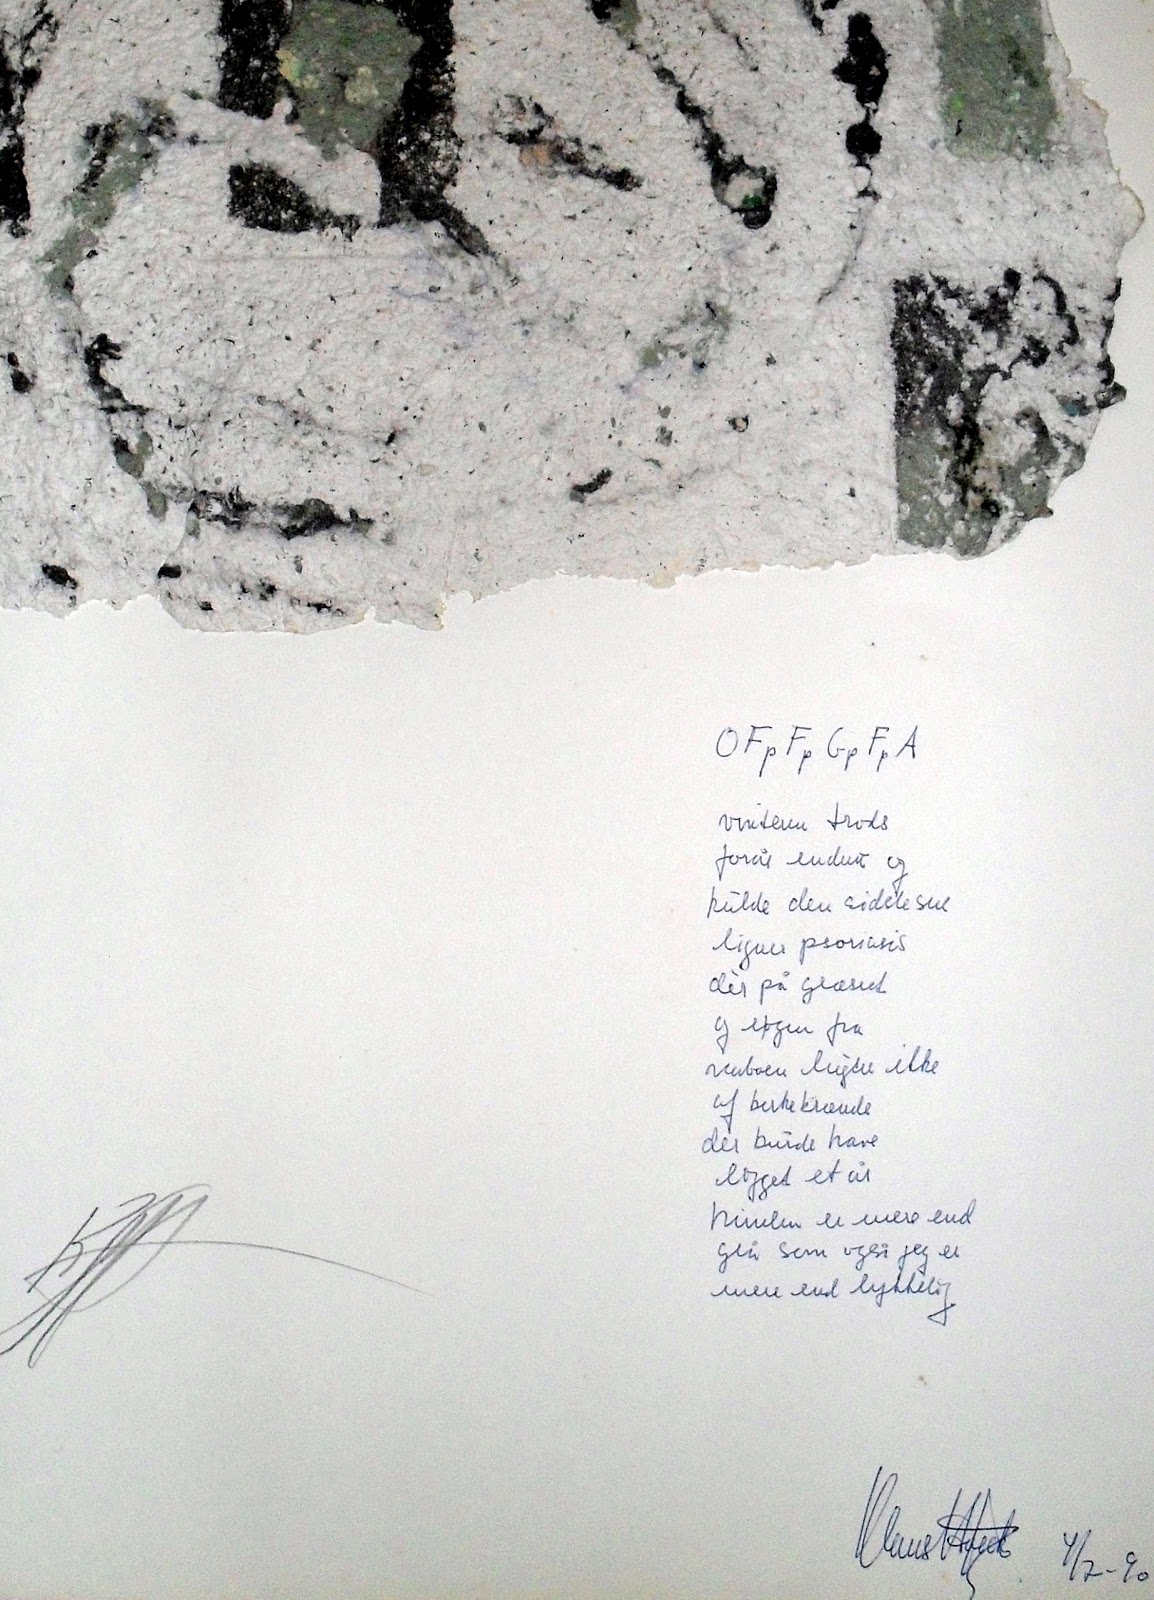 O Fp Fp Gp Fp A
vinteren trods
forår endnu og
kulde den sidste sne
ligner psoriasis
dèr på græsset
og røgen fra
naboen lugter ikke
af berkebrænde
dèr burde have
ligget et år
himlen er mere end
grå som også jeg er
mere end lykkelig
Klaus Høeck
4/2-90